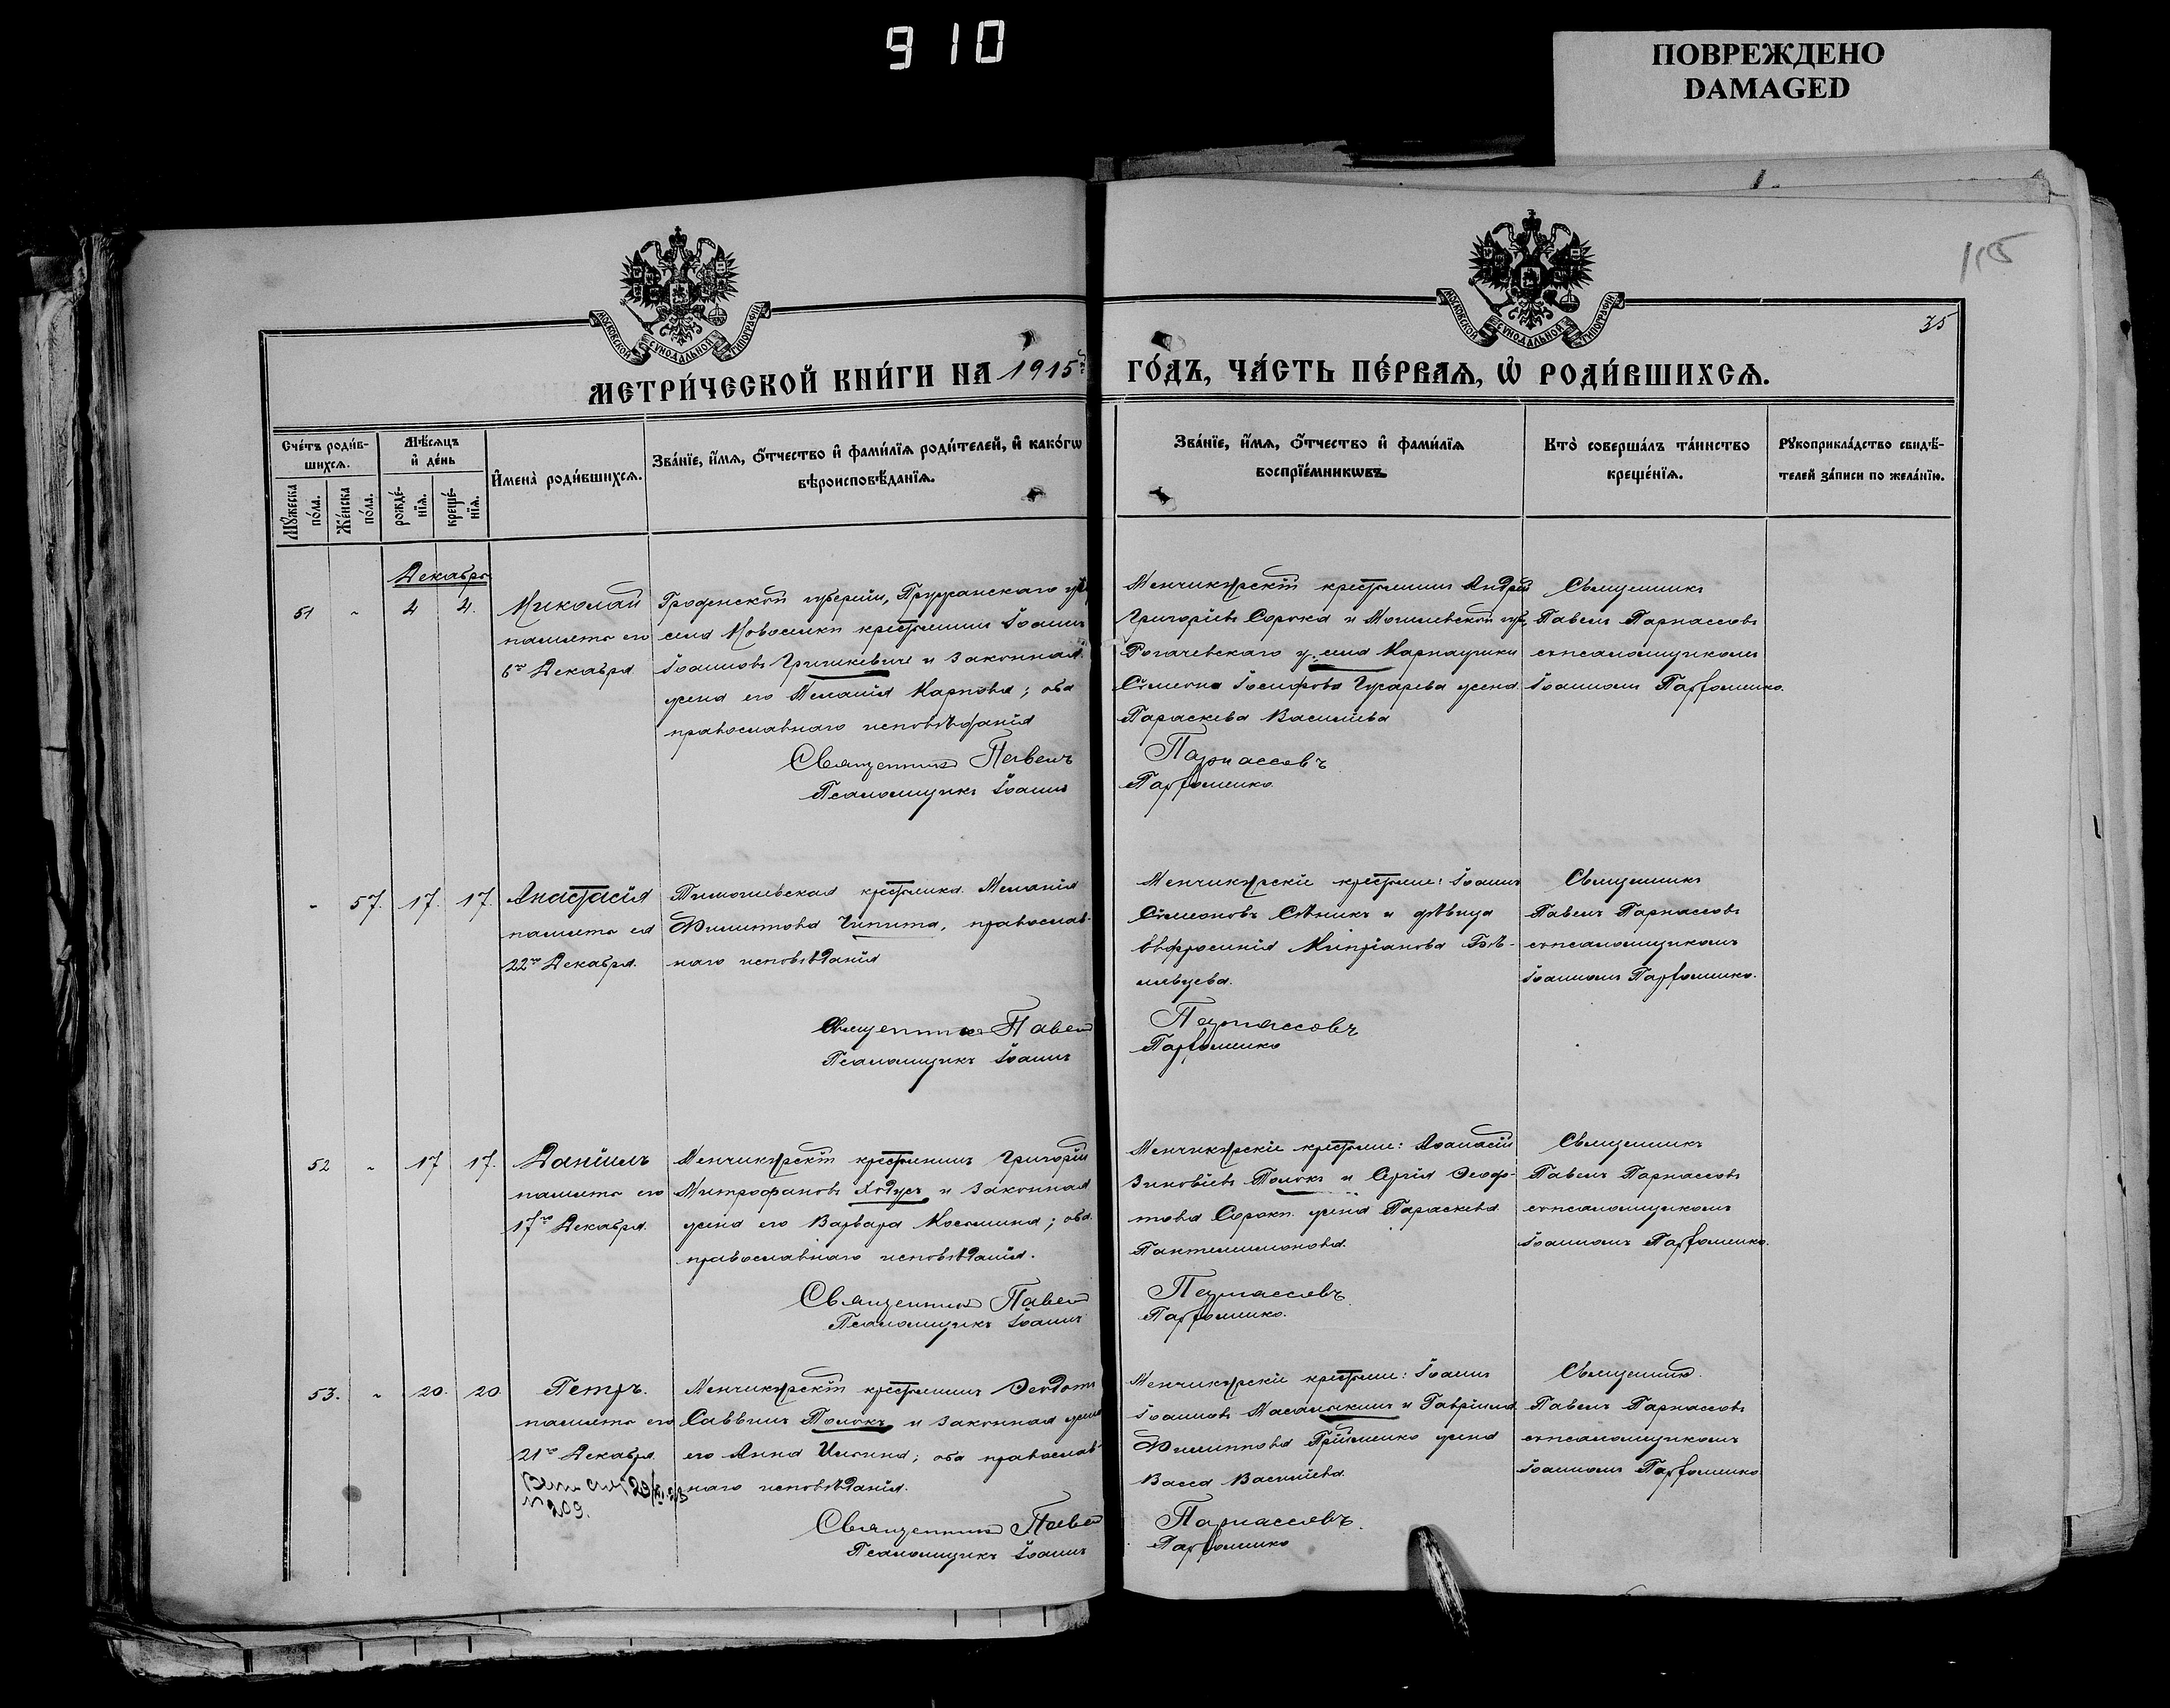 910
ПОВРЕЖДЕНО
DAMAGED
115
35
МОСКОВСКОЙ СѴНОДАЛЬНОЙ ТИПОГРАФІИ
МОСКОВСКОЙ СѴНОДАЛЬНОЙ ТИПОГРАФІИ
МЕТРИ́ЧЕСКОЙ КНИ́ГИ НА 1915й ГО́ДЪ, ЧА́СТЬ ПЕ́РВАЯ, Ѡ РОДИ́ВШИХСЯ.
Сче́тъ роди́в-
шихся.
Мѣ́сяцъ
и де́нь
Мꙋ́жеска по́ла.
Же́нска по́ла.
рожде́-
нїя.
креще́-
нїя.
Имена̀ роди́вшихся.
Зва́нїе, и́мя, о́тчество и фами́лїя роди́телей, и како́гѡ
вѣроисповѣ́данїя.
Зва́нїе, и́мя, о́тчество и фами́лїя
воспрїе́мникѡвъ.
Кто̀ соверша́лъ та́инство
креще́нїя.
Рꙋкоприкла́дство свидѣ́-
телей за́писи по жела́нїю.
Декабрь
51 " 4 4. Николай
память его
6го Декабря
Гродненской губерніи, Пружанскаго уѣз.
села Новоселки крестьянинъ Іоаннъ
Іоанновъ Гришкевичъ и законная
жена его Меланія Карпова; оба
православнаго исповѣданія
Священникъ Павелъ
Псаломщикъ Іоаннъ
Менчикурскій крестьянинъ Андрей
Григоріевъ Сорока и Могилевской губ.,
Рогачевскаго у. села
Сѵмеона Іосифова жена
Параскева Васильева
Парнассовъ
Парфоменко
Священникъ
Павелъ Парнассовъ
съ псаломщикомъ
Іоанномъ Парфоменко.
- 57. 17. 17. Анастасія
память ея
22го Декабря.
крестьянка Меланія
Филиппова Чипита, православ-
наго исповѣданія
Священникъ Павелъ
Псаломщикъ Іоаннъ
Менчикурскіе крестьяне: Іоаннъ
Сѵмеоновъ и дѣвица
Евфросинія Кипріанова Бѣ-
Парнассовъ
Парфоменко
Священникъ
Павелъ Парнассовъ
съ псаломщикомъ
Іоанномъ Парфоменко.
52 " 17 17. Даніилъ
память его
17го Декабря.
Менчикурскій крестьянинъ Григорій
Митрофановъ Ходусъ и законная
жена его Варвара Косьмина; оба
православнаго исповѣданія.
Священникъ Павелъ
Псаломщикъ Іоаннъ
Менчикурскіе крестьяне: Аѳанасій
Зиновіевъ Толокъ и Сергія Ѳеофи-
това Сороки жена Параскева
Пантелеимонова.
Парнассовъ
Парфоменко.
Священникъ
Павелъ Парнассовъ
съ псаломщикомъ
Іоанномъ Парфоменко.
53. " 20. 20 Петръ.
память его
21го Декабря.
№ 209.
Менчикурскій крестьянинъ Ѳеодотъ
Саввинъ Толокъ и законная жена
его Анна Ильина; оба православ-
наго исповѣданія.
Священникъ Павелъ
Псаломщикъ Іоаннъ
Менчикурскіе крестьяне: Іоаннъ
Іоанновъ Масалыкинъ и Гавріила
Филиппова Прійменко жена
Васса Васильева
Парнассовъ.
Парфоменко
Священникъ.
Павелъ Парнассовъ
съ псаломщикомъ
Іоанномъ Парфоменко